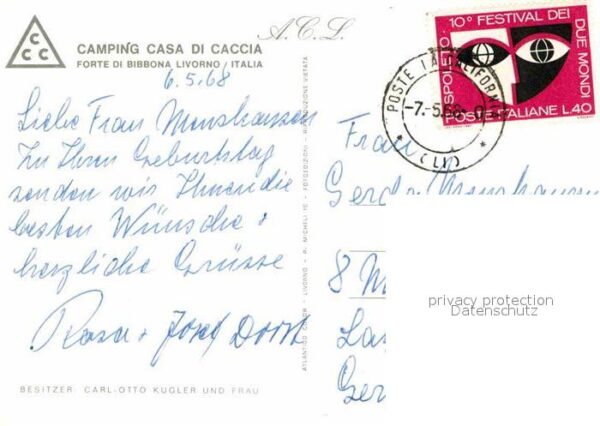 C C C
CAMPING CASA DI CACCIA
FORTE DI BIBBONA LIVORNO / ITALIA
A.C.L.
6.5.68
Liebe Frau Menshausen
Zu Ihrem Geburtstag
senden wir Ihnen die
besten Wünsche +
herzliche Grüsse
Rosa + Josef
BESITZER: CARL-OTTO KUGLER UND FRAU
RIPRODUZIONE VIETATA
LIVORNO - P. MICHELI
10° FESTIVAL DEI
DUE MONDI
SPOLETO
POSTE ITALIANE L.40
POSTE
-7.-5.68
(LI)
Frau
Gerda Menshausen
8 M
privacy protection
Datenschutz